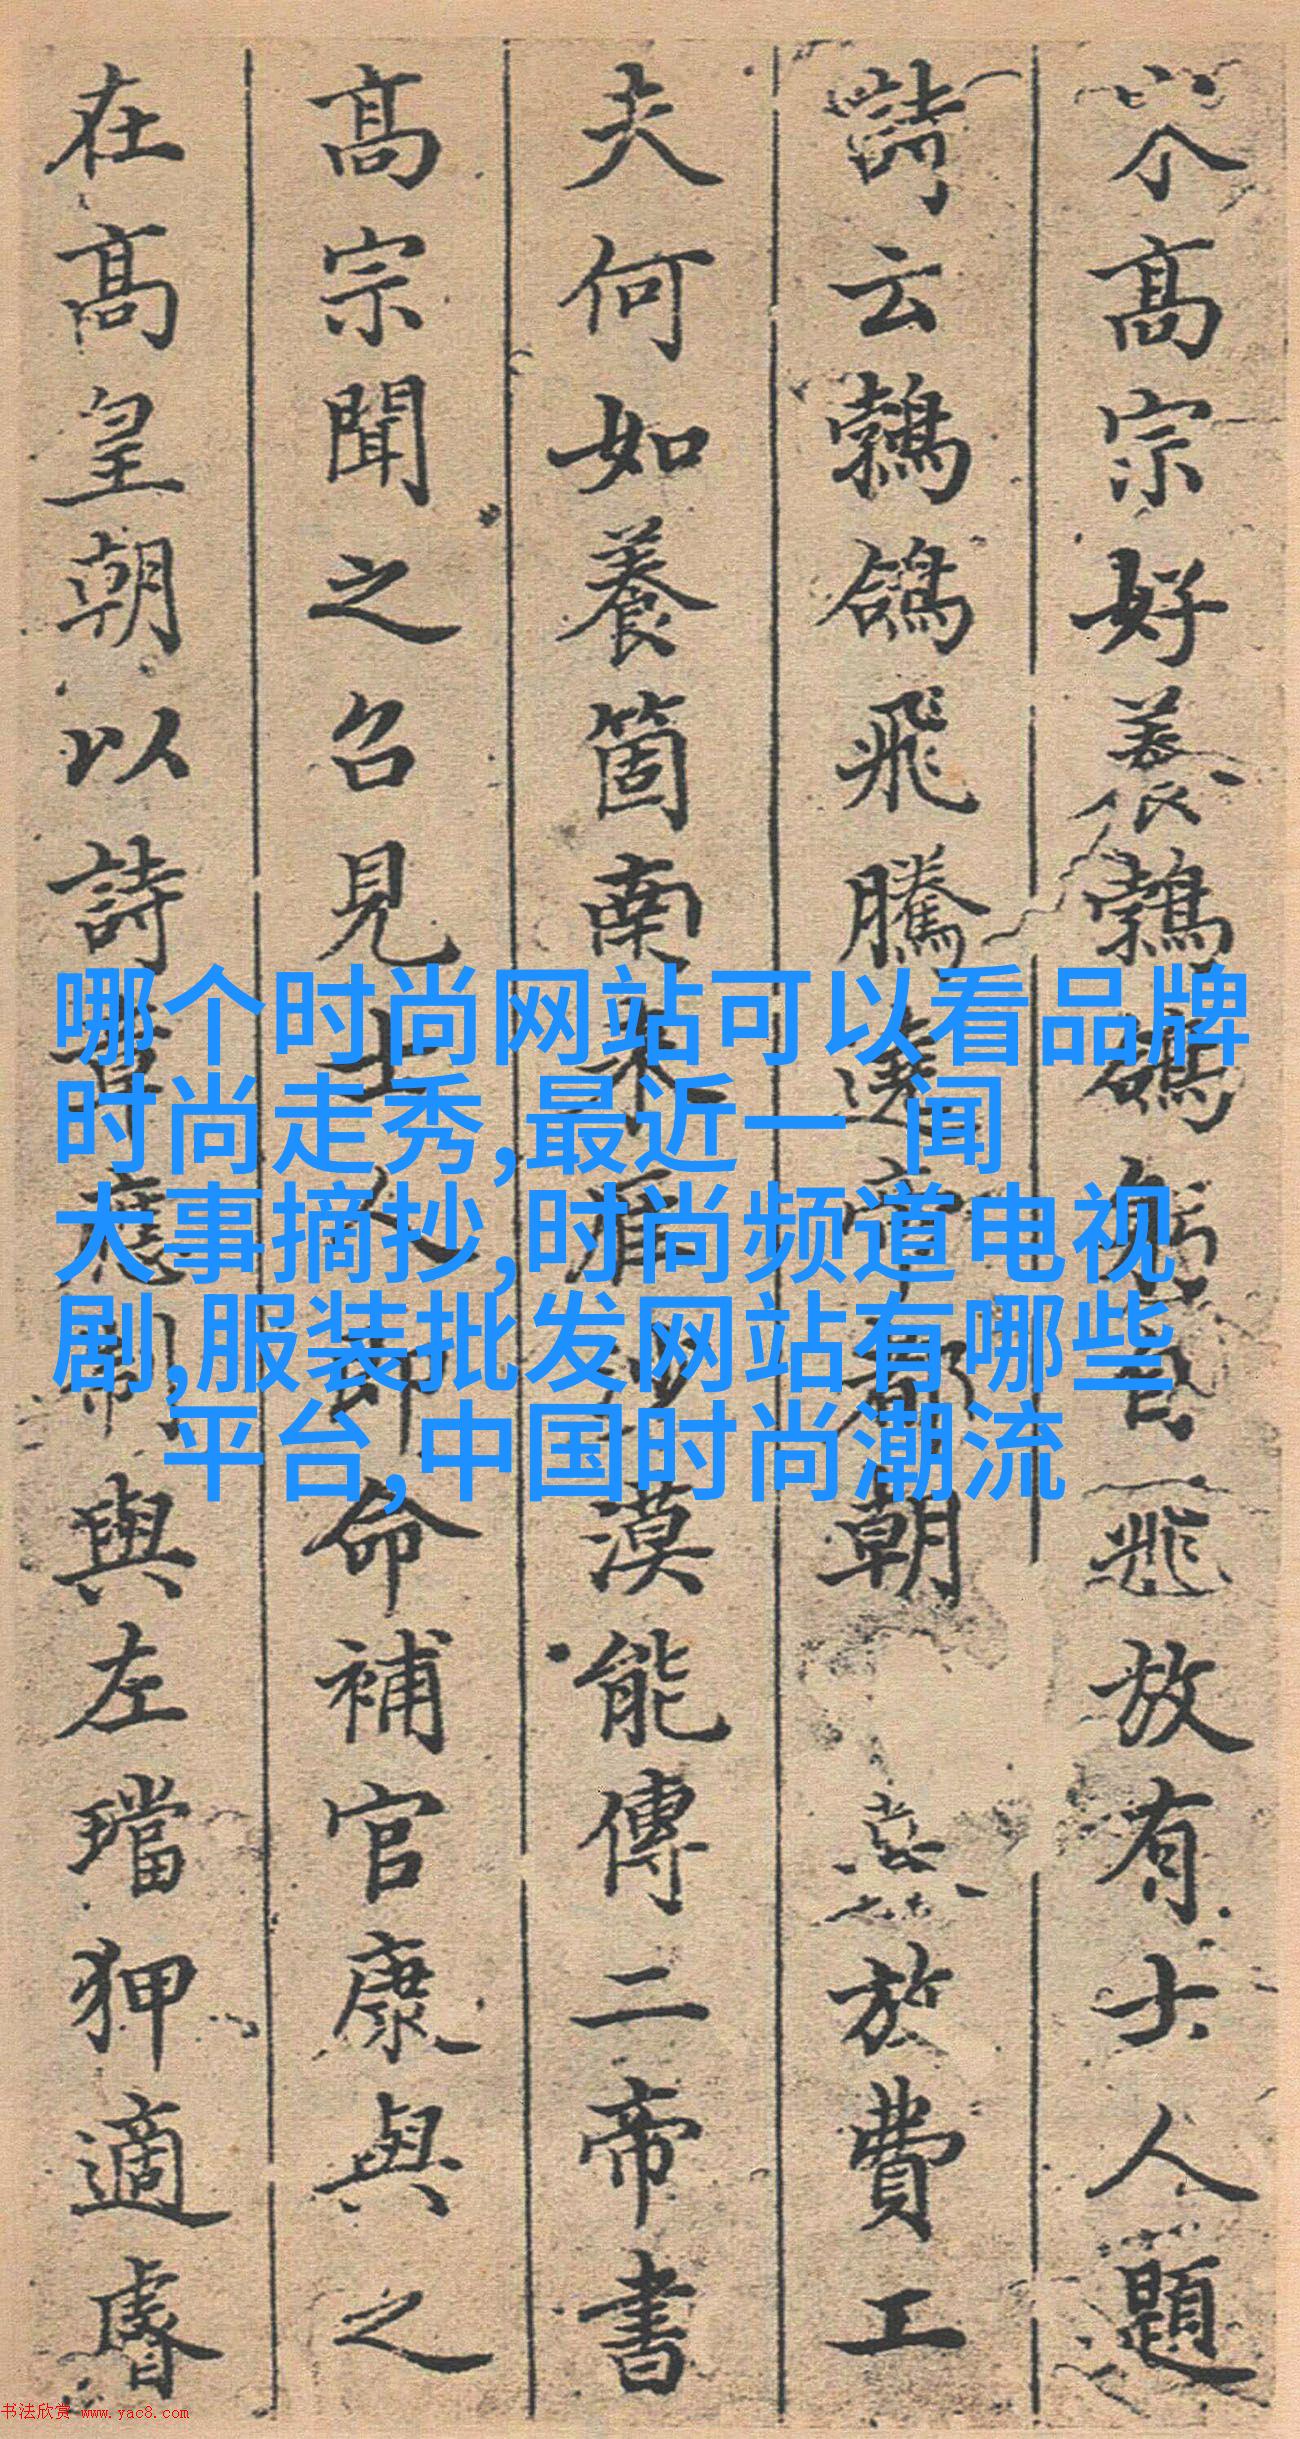 高宗好養鵓鴿躬自飛放有士人題
詩云鵓鴿飛騰遶帝都朝暮放費工
夫何如養箇南來鴈沙漠能傳二帝書
高宗聞之召見士人即命補官康與之
在高皇朝以詩章應制與左璫狎適睿
哪个时尚网站可以看品牌
时尚走秀,最近一 闻
大事摘抄,时尚频道电视
剧,服装批发网站有哪些
平台,中国时尚潮流
书法欣赏 www.yac8.com